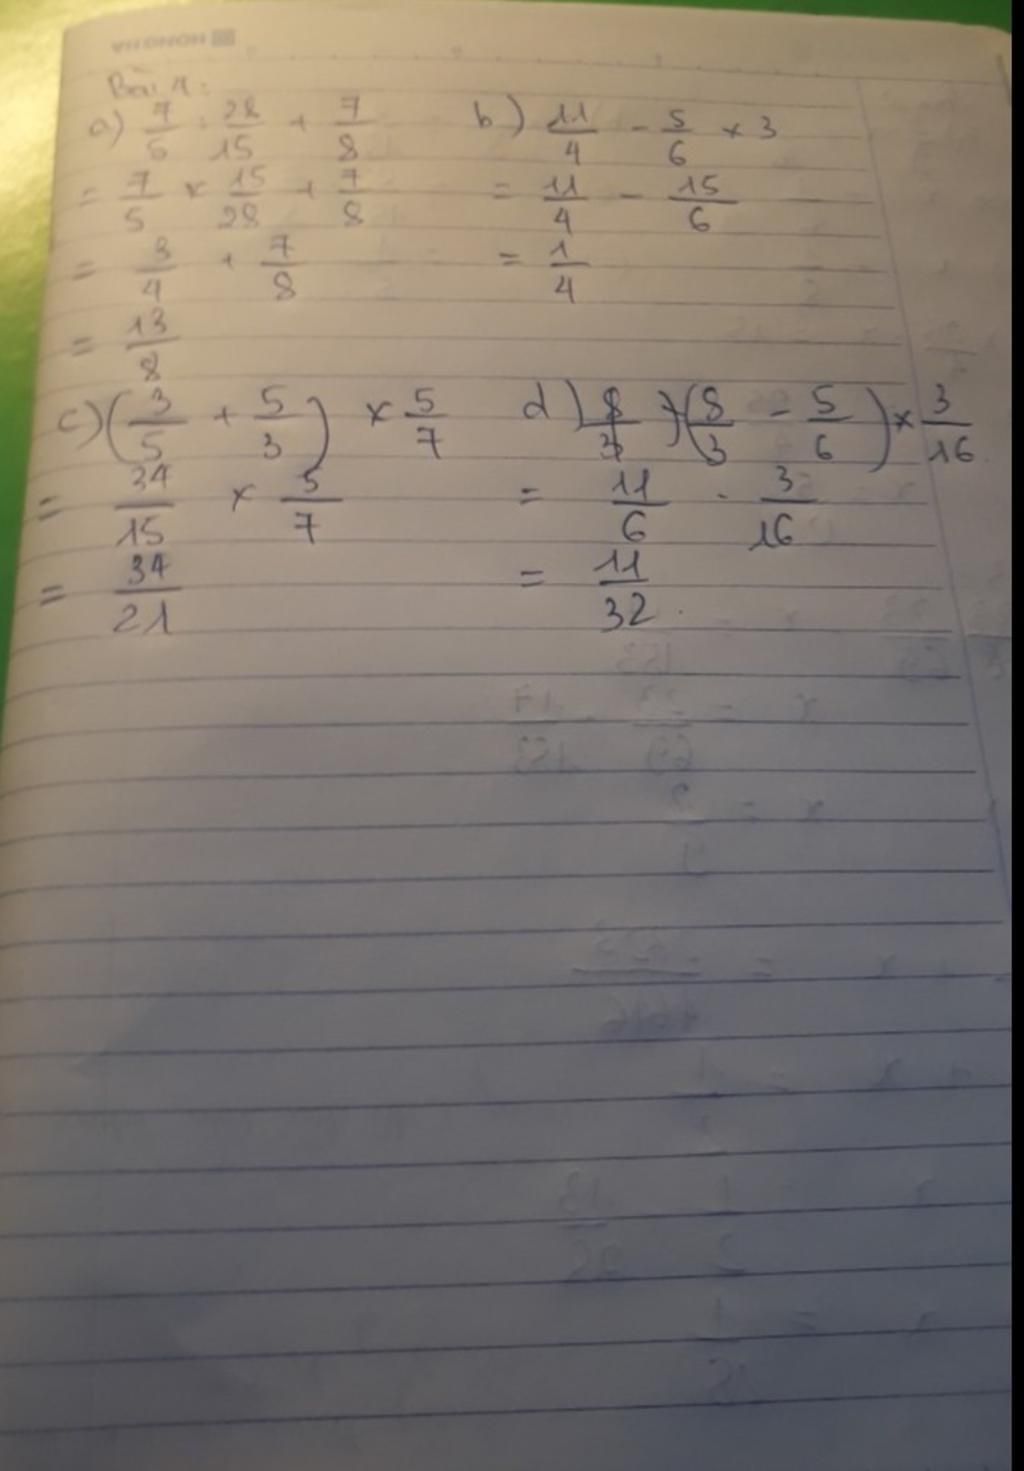 HONG HA
Bài 1:
a) 7/5 : 28/15 + 7/8
= 7/5 × 15/28 + 7/8
= 3/4 + 7/8
= 13/8
b) 11/4 - 5/6 × 3
= 11/4 - 15/6
= 1/4
c) (3/5 + 5/3) × 5/7
= 34/15 × 5/7
= 34/21
d) (8/3 - 5/6) × 3/16
= 11/6 . 3/16
= 11/32.